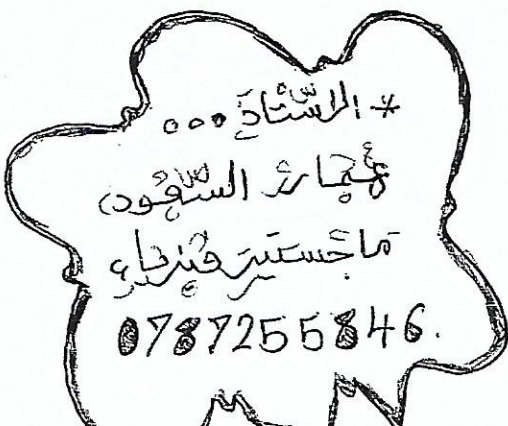 * الأستاذ ...
عمار السعود
ماجستير فيزياء
0787255846.